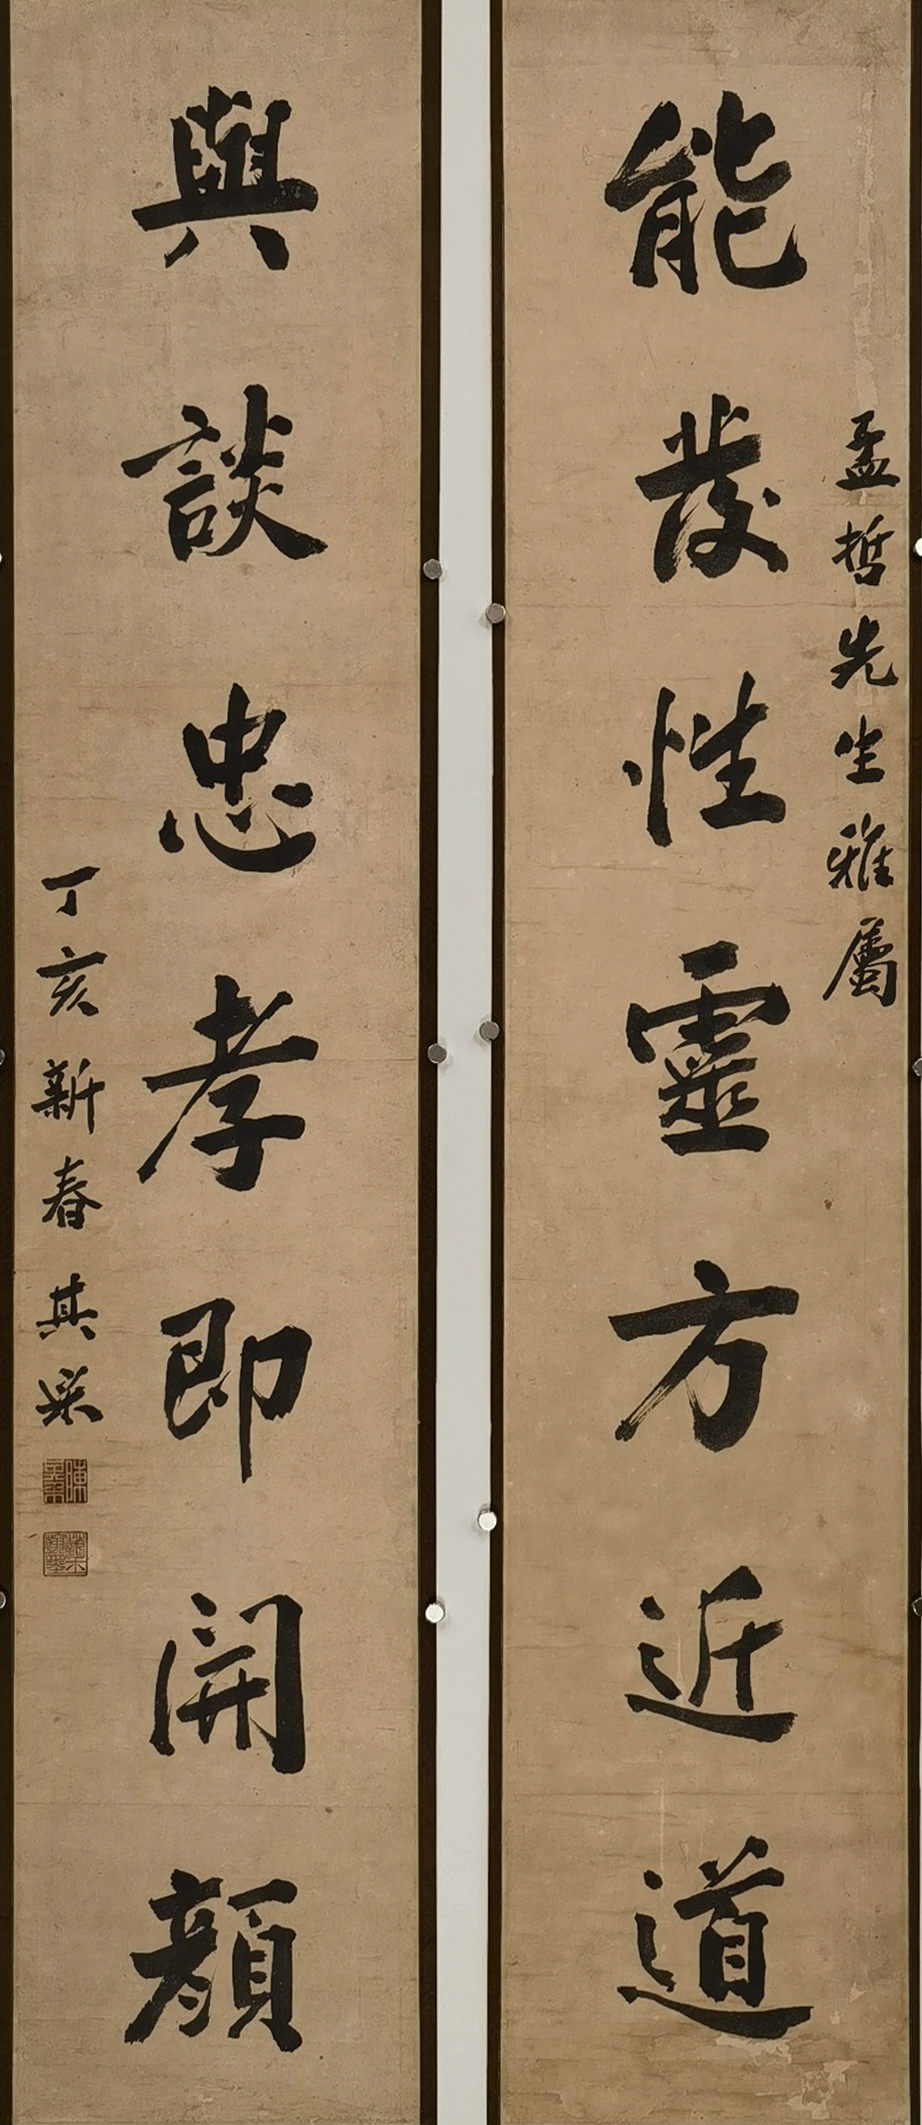 孟哲先生雅屬
能發性靈方近道
與談忠孝即開顏
丁亥新春其采